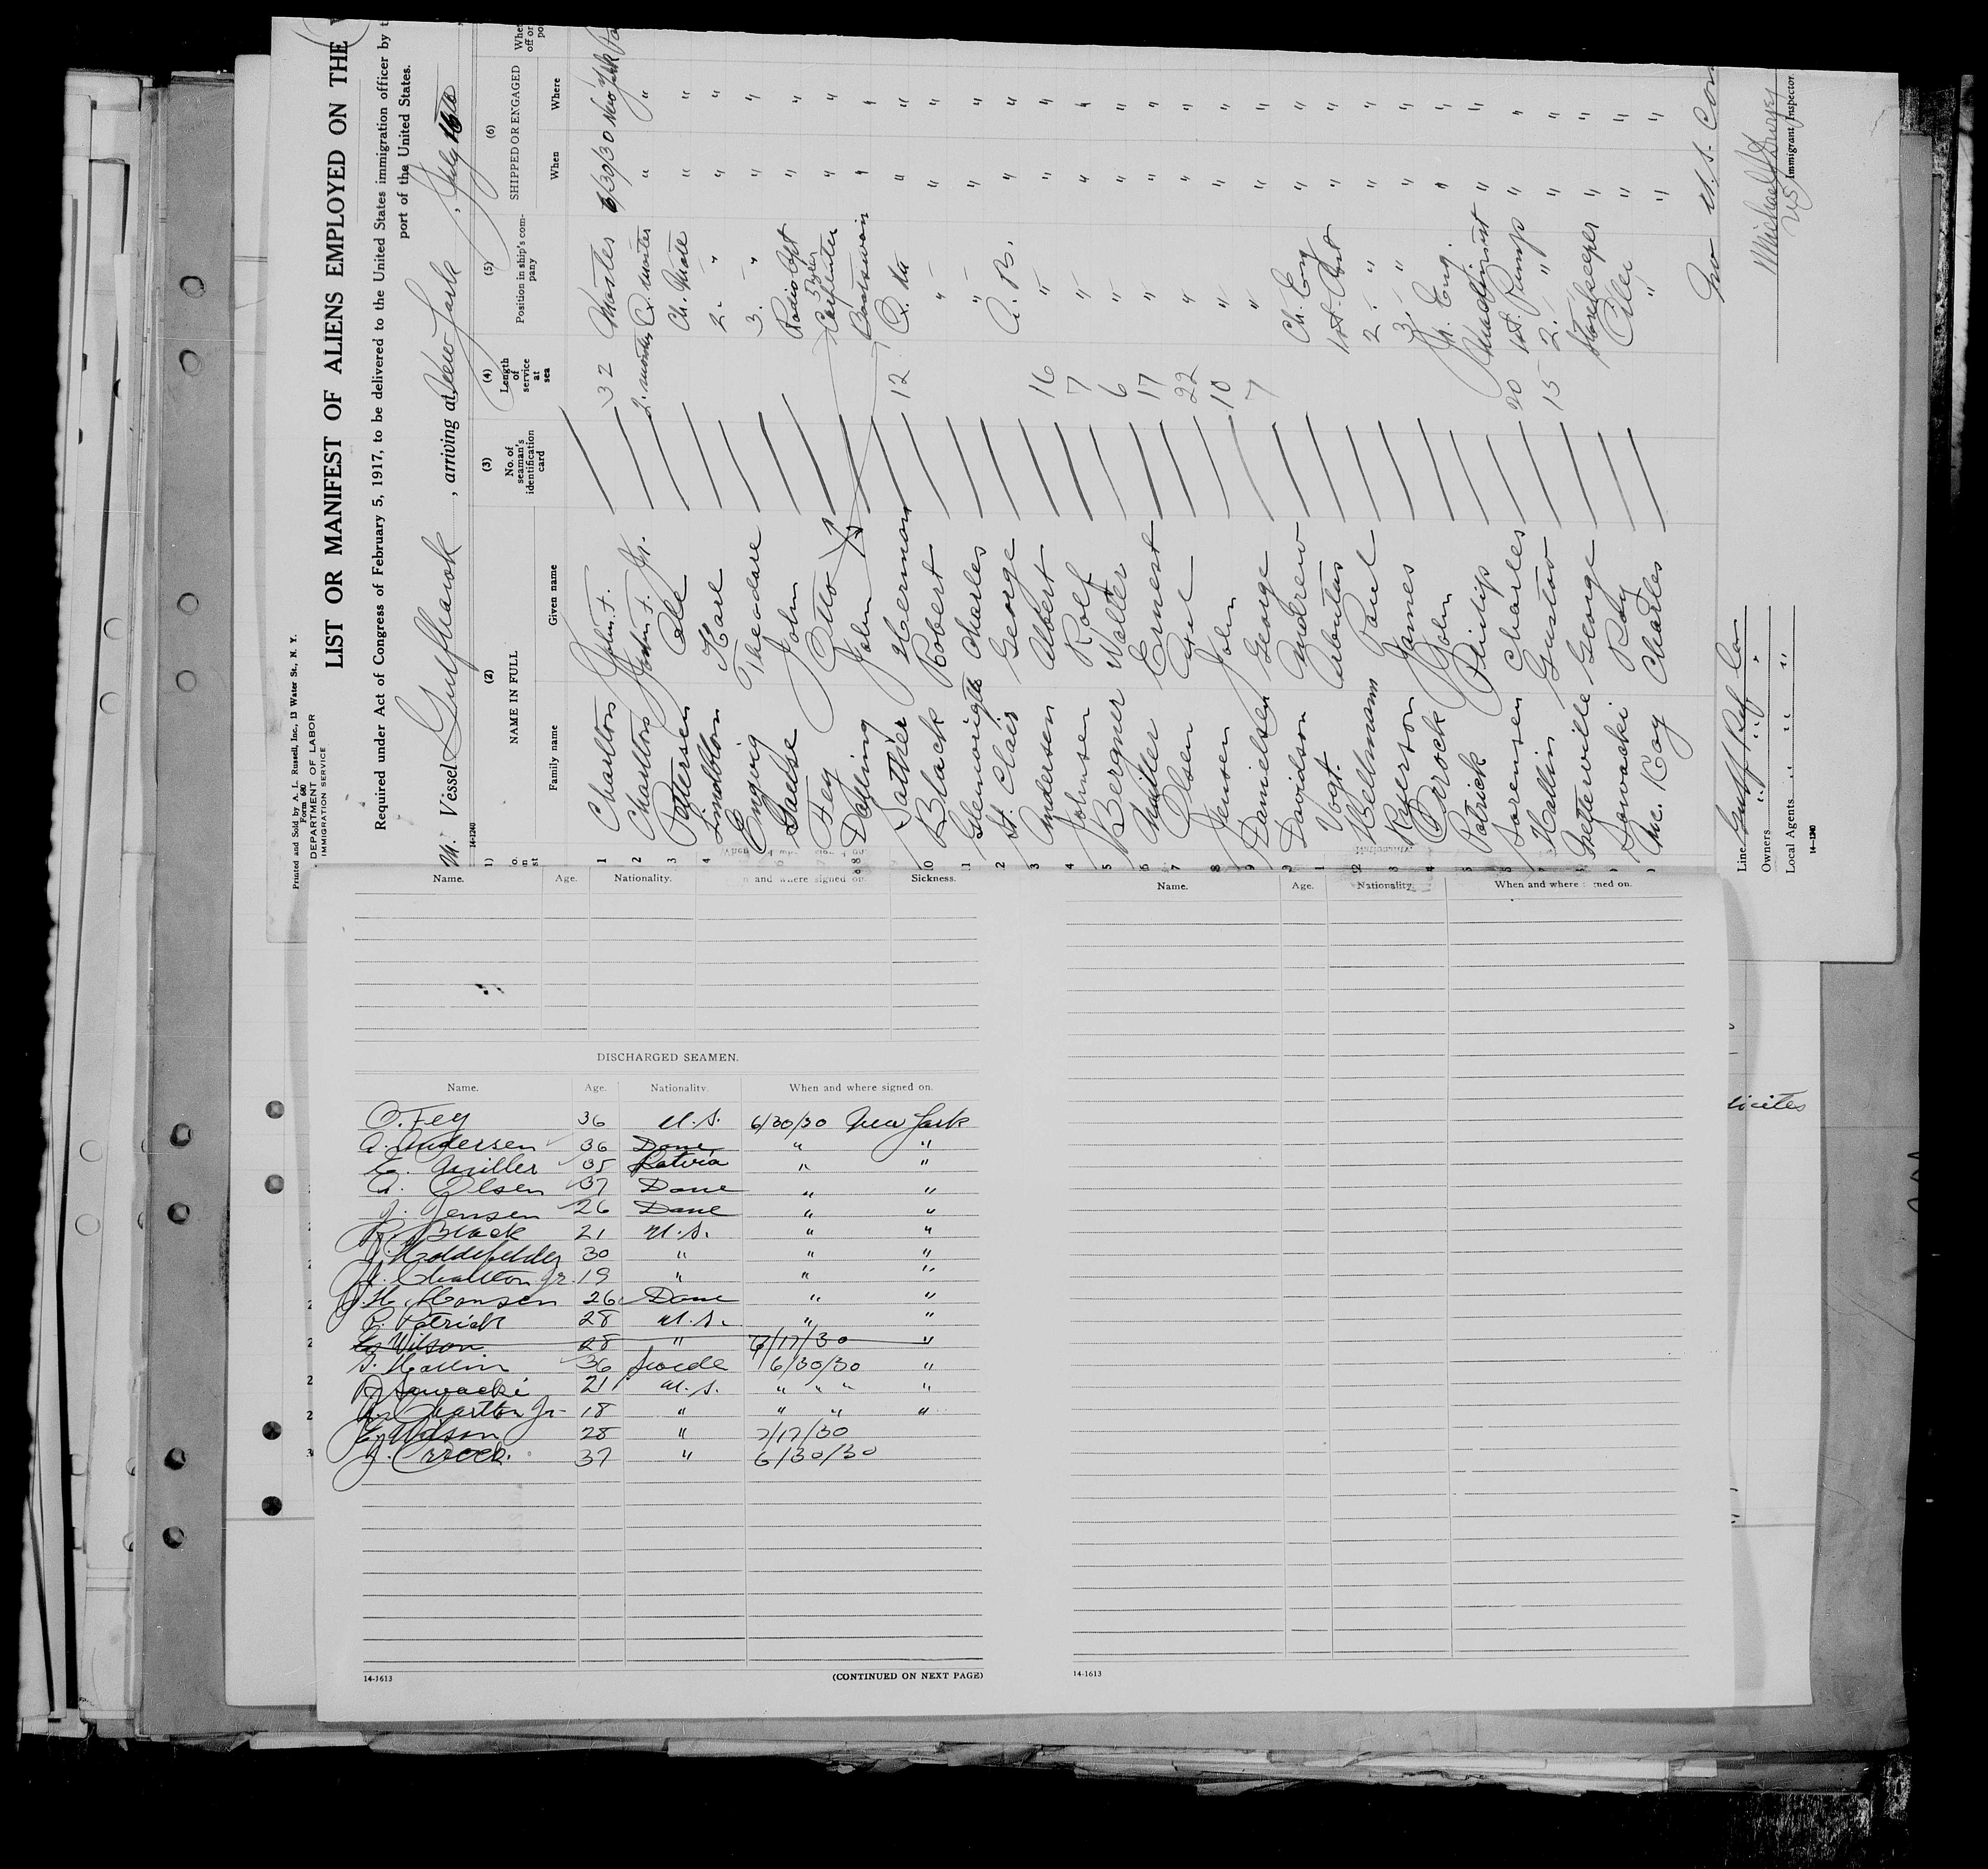 Printed and Sold by A. L. Russell, Inc., 13 Water St., N. Y.
Form 680
DEPARTMENT OF LABOR
IMMIGRATION SERVICE
LIST OR MANIFEST OF ALIENS EMPLOYED ON THE
Required under Act of Congress of February 5, 1917, to be delivered to the United States immigration officer by
port of the United States.
Vessel Gulfhawk, arriving at New York, July 16
14-1240
(2) (3) (4) (5) (6)
NAME IN FULL No. of seaman's identification card Length of service at sea Position in ship's company SHIPPED OR ENGAGED
Family name Given name When Where
1 Charlton John F. 32 Master 6/30/30 New York
2 Charlton John F. Jr. 2 months " "
3 Petersen Ole Ch. Mate " "
4 Lindblom Karl 2. " " "
Engvig Theodore 3. " " "
John Radio Opt " "
Fey Otto Carpenter " "
8 Dahling John Boatswain " "
Sather Herman 12 Q. M. " "
10 Black Robert " " "
11 Charles " " "
2 St. Clair George A. B. " "
3 Andersen Albert 16 " " "
4 Johnsen Rolf 7 " " "
5 Bergner Walter 6 " " "
6 Miller Ernest 17 " " "
7 Olsen Axel 22 " " "
8 Jensen John 10 " " "
9 Danielsen George 7 " " "
Davidson Andrew Ch. Eng " "
1 Vogt. Arbutus 1st Asst " "
2 Hellmann Paul 2. " " "
3 James 3. " " "
4 Crock John Jr. Eng. " "
5 Patrick Philip Machinist " "
Sorensen Charles 20 1st. Pump " "
Hallin Gustav 15 2. " " "
George Storekeeper " "
Sawacki Ray Oiler " "
Mc. Koy Charles " " "
Line Gulf Ref Con
Owners " " "
Local Agents " " "
14-1240
Michael J.
Immigrant Inspector.
Name. Age. Nationality. and where signed on. Sickness.
DISCHARGED SEAMEN.
Name. Age. Nationality. When and where signed on.
O. Fey 36 U.S. 6/30/30 New York
A. Andersen 36 Dane " "
E. Miller 35 Latvia " "
A. Olsen 37 Dane " "
J. Jensen 26 Dane " "
R. Black 21 U.S. " "
30 " " "
J. Charlton Jr. 19 " " "
H. Hansen 26 Dane " "
P. Patrick 28 U.S. " "
Wilson 28 " 7/17/30 "
G. Hallin 36 Swede 6/30/30 "
R Sawacki 21 U.S. " " " "
Charlton Jr 18 " " " "
Wilson 28 " 7/17/30
J. Crock. 37 " 6/30/30
14-1613
(CONTINUED ON NEXT PAGE)
Name. Age. Nationality. When and where signed on.
14-1613